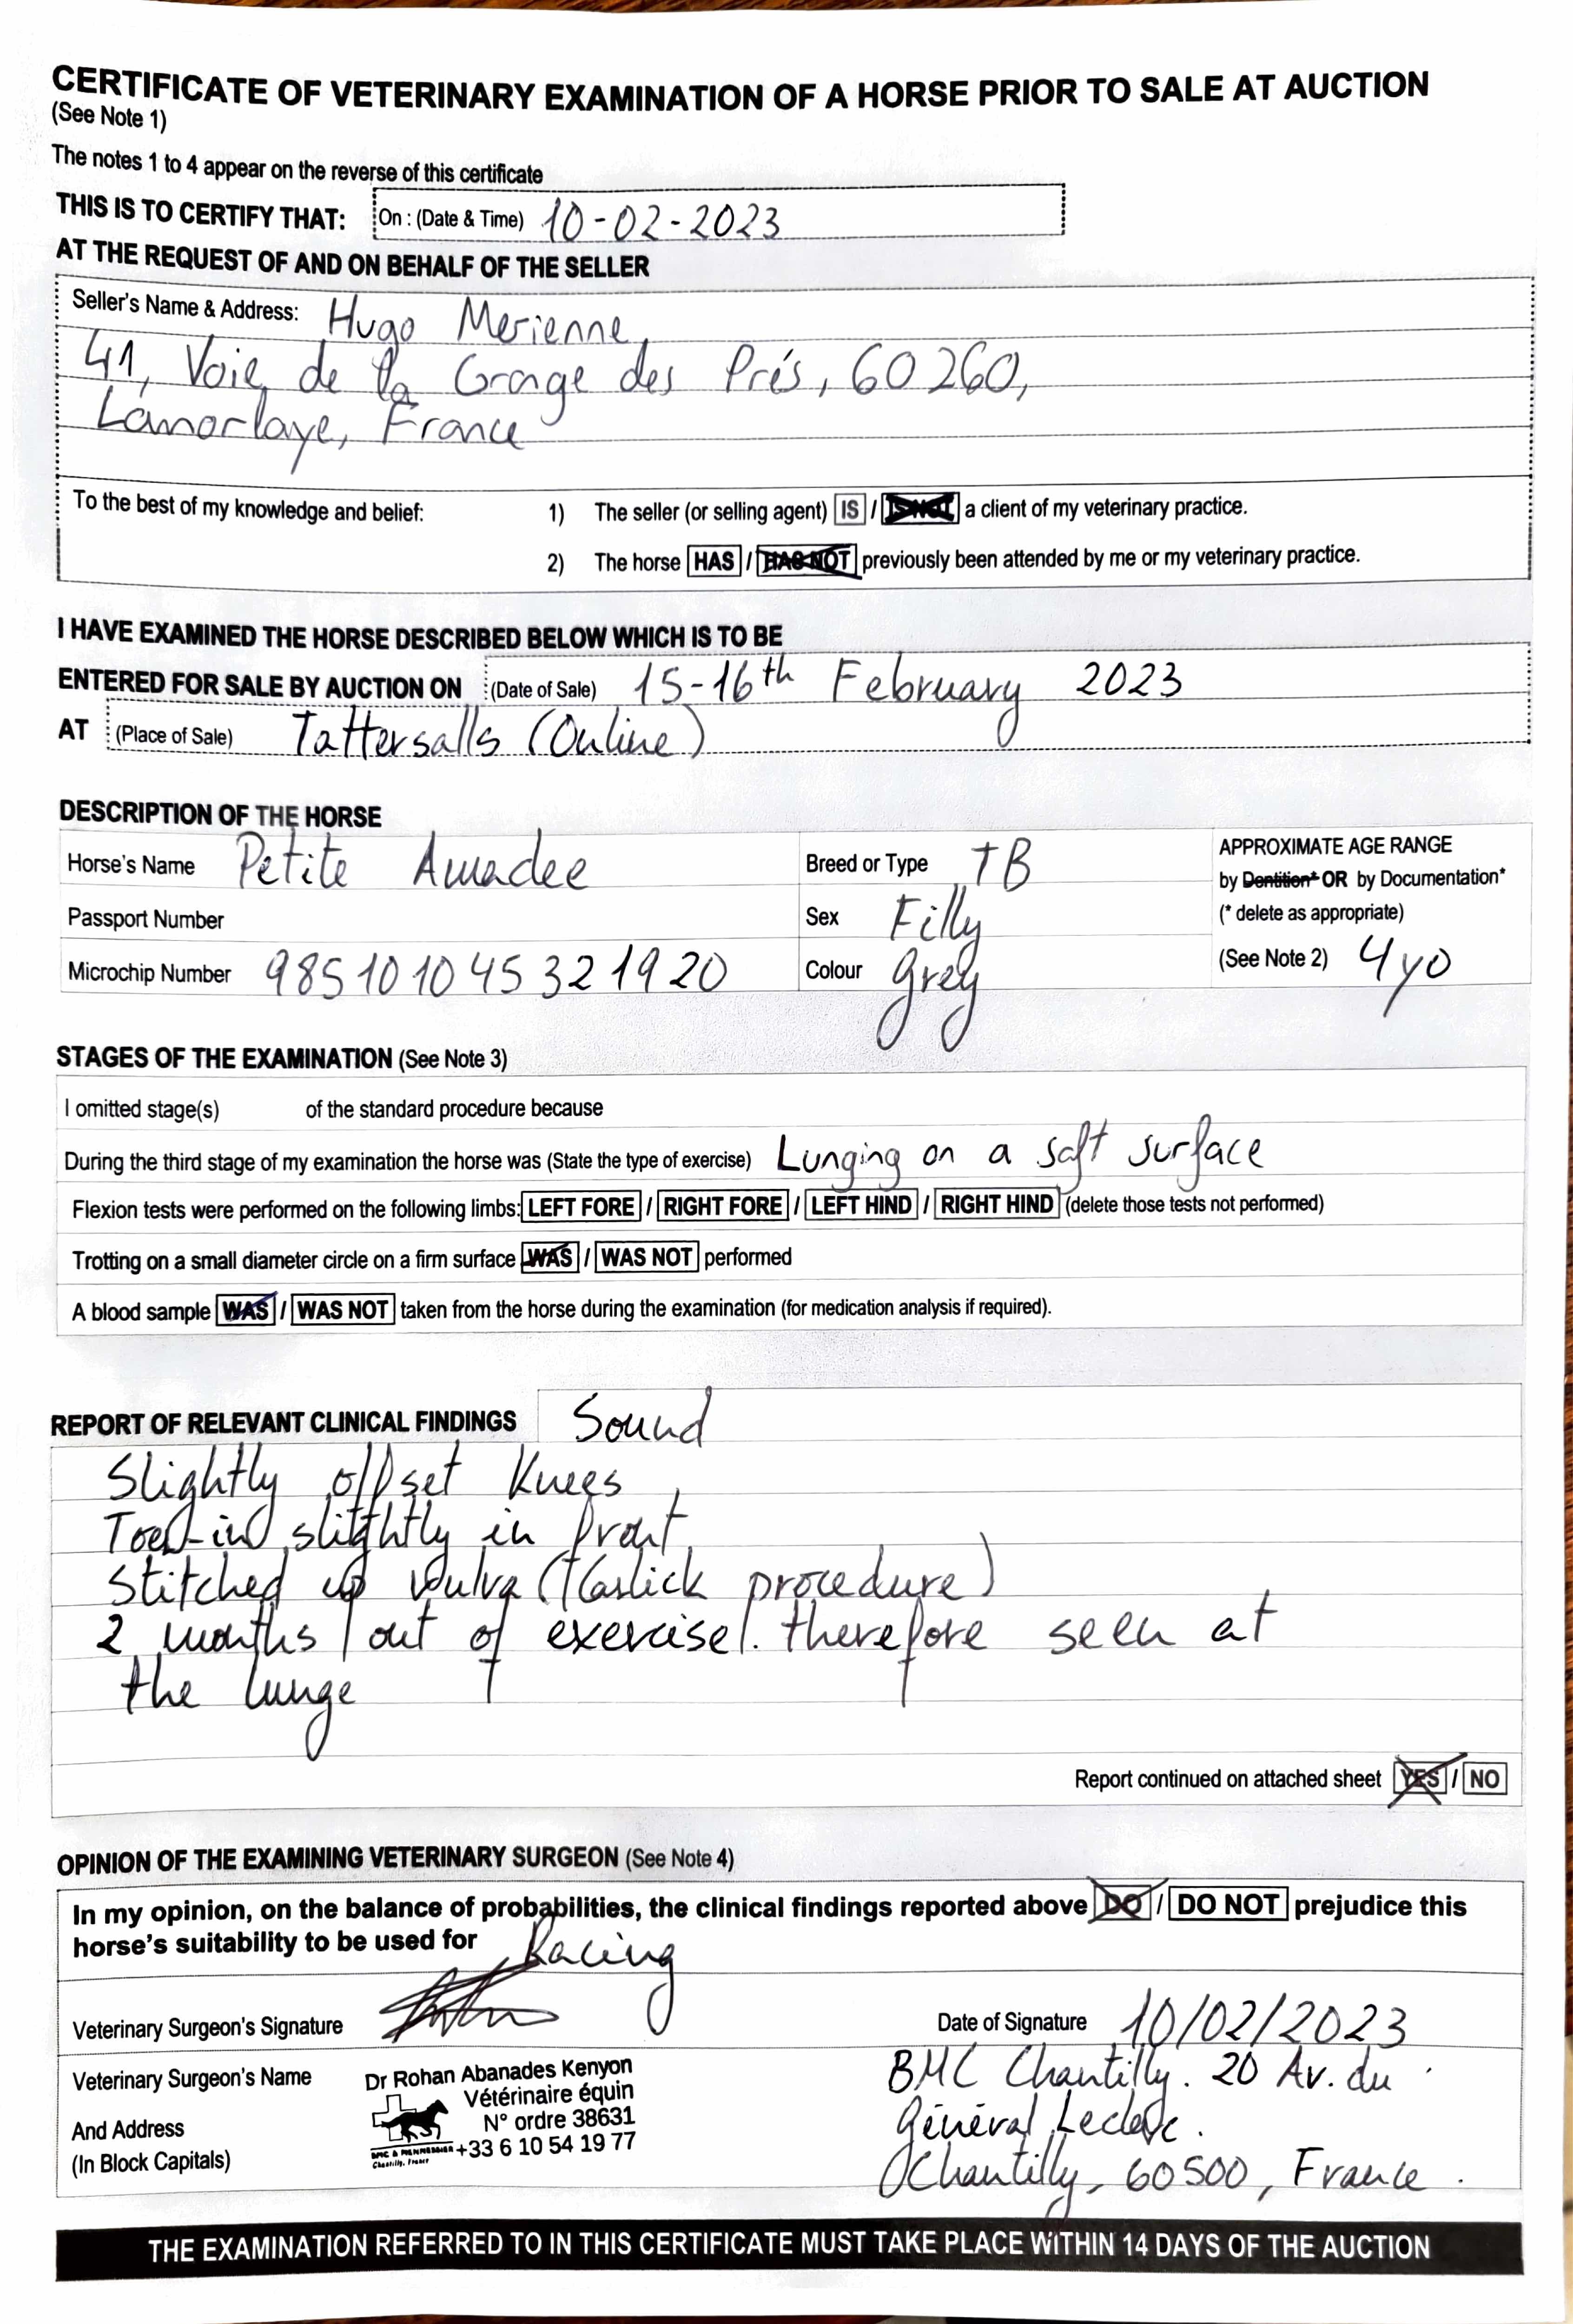 CERTIFICATE OF VETERINARY EXAMINATION OF A HORSE PRIOR TO SALE AT AUCTION
(See Note 1)
The notes 1 to 4 appear on the reverse of this certificate
THIS IS TO CERTIFY THAT: On : (Date & Time) 10-02-2023
AT THE REQUEST OF AND ON BEHALF OF THE SELLER
Seller's Name & Address: Hugo Merienne
41, Voie de la Grange des Prés, 60260,
Lamorlaye, France
To the best of my knowledge and belief: 1) The seller (or selling agent) IS / IS NOT a client of my veterinary practice.
2) The horse HAS / HAS NOT previously been attended by me or my veterinary practice.
I HAVE EXAMINED THE HORSE DESCRIBED BELOW WHICH IS TO BE
ENTERED FOR SALE BY AUCTION ON (Date of Sale) 15-16th February 2023
AT (Place of Sale) Tattersalls (Online)
DESCRIPTION OF THE HORSE
Horse's Name Petite Amadee Breed or Type TB APPROXIMATE AGE RANGE
by Dentition* OR by Documentation*
Passport Number Sex Filly (* delete as appropriate)
Microchip Number 985101045321920 Colour grey (See Note 2) 4yo
STAGES OF THE EXAMINATION (See Note 3)
I omitted stage(s) of the standard procedure because
During the third stage of my examination the horse was (State the type of exercise) Lunging on a soft surface
Flexion tests were performed on the following limbs: LEFT FORE / RIGHT FORE / LEFT HIND / RIGHT HIND (delete those tests not performed)
Trotting on a small diameter circle on a firm surface WAS / WAS NOT performed
A blood sample WAS / WAS NOT taken from the horse during the examination (for medication analysis if required).
REPORT OF RELEVANT CLINICAL FINDINGS Sound
Slightly offset Knees
Toed-in slightly in front
Stitched up vulva (Caslick procedure)
2 months out of exercise. therefore seen at
the lunge
Report continued on attached sheet YES / NO
OPINION OF THE EXAMINING VETERINARY SURGEON (See Note 4)
In my opinion, on the balance of probabilities, the clinical findings reported above DO / DO NOT prejudice this
horse's suitability to be used for Racing
Veterinary Surgeon's Signature Date of Signature 10/02/2023
Veterinary Surgeon's Name Dr Rohan Abanades Kenyon BMC Chantilly. 20 Av. du
Vétérinaire équin
And Address N° ordre 38631 Général Leclerc.
+33 6 10 54 19 77
(In Block Capitals) Chantilly, France Chantilly, 60500, France.
THE EXAMINATION REFERRED TO IN THIS CERTIFICATE MUST TAKE PLACE WITHIN 14 DAYS OF THE AUCTION